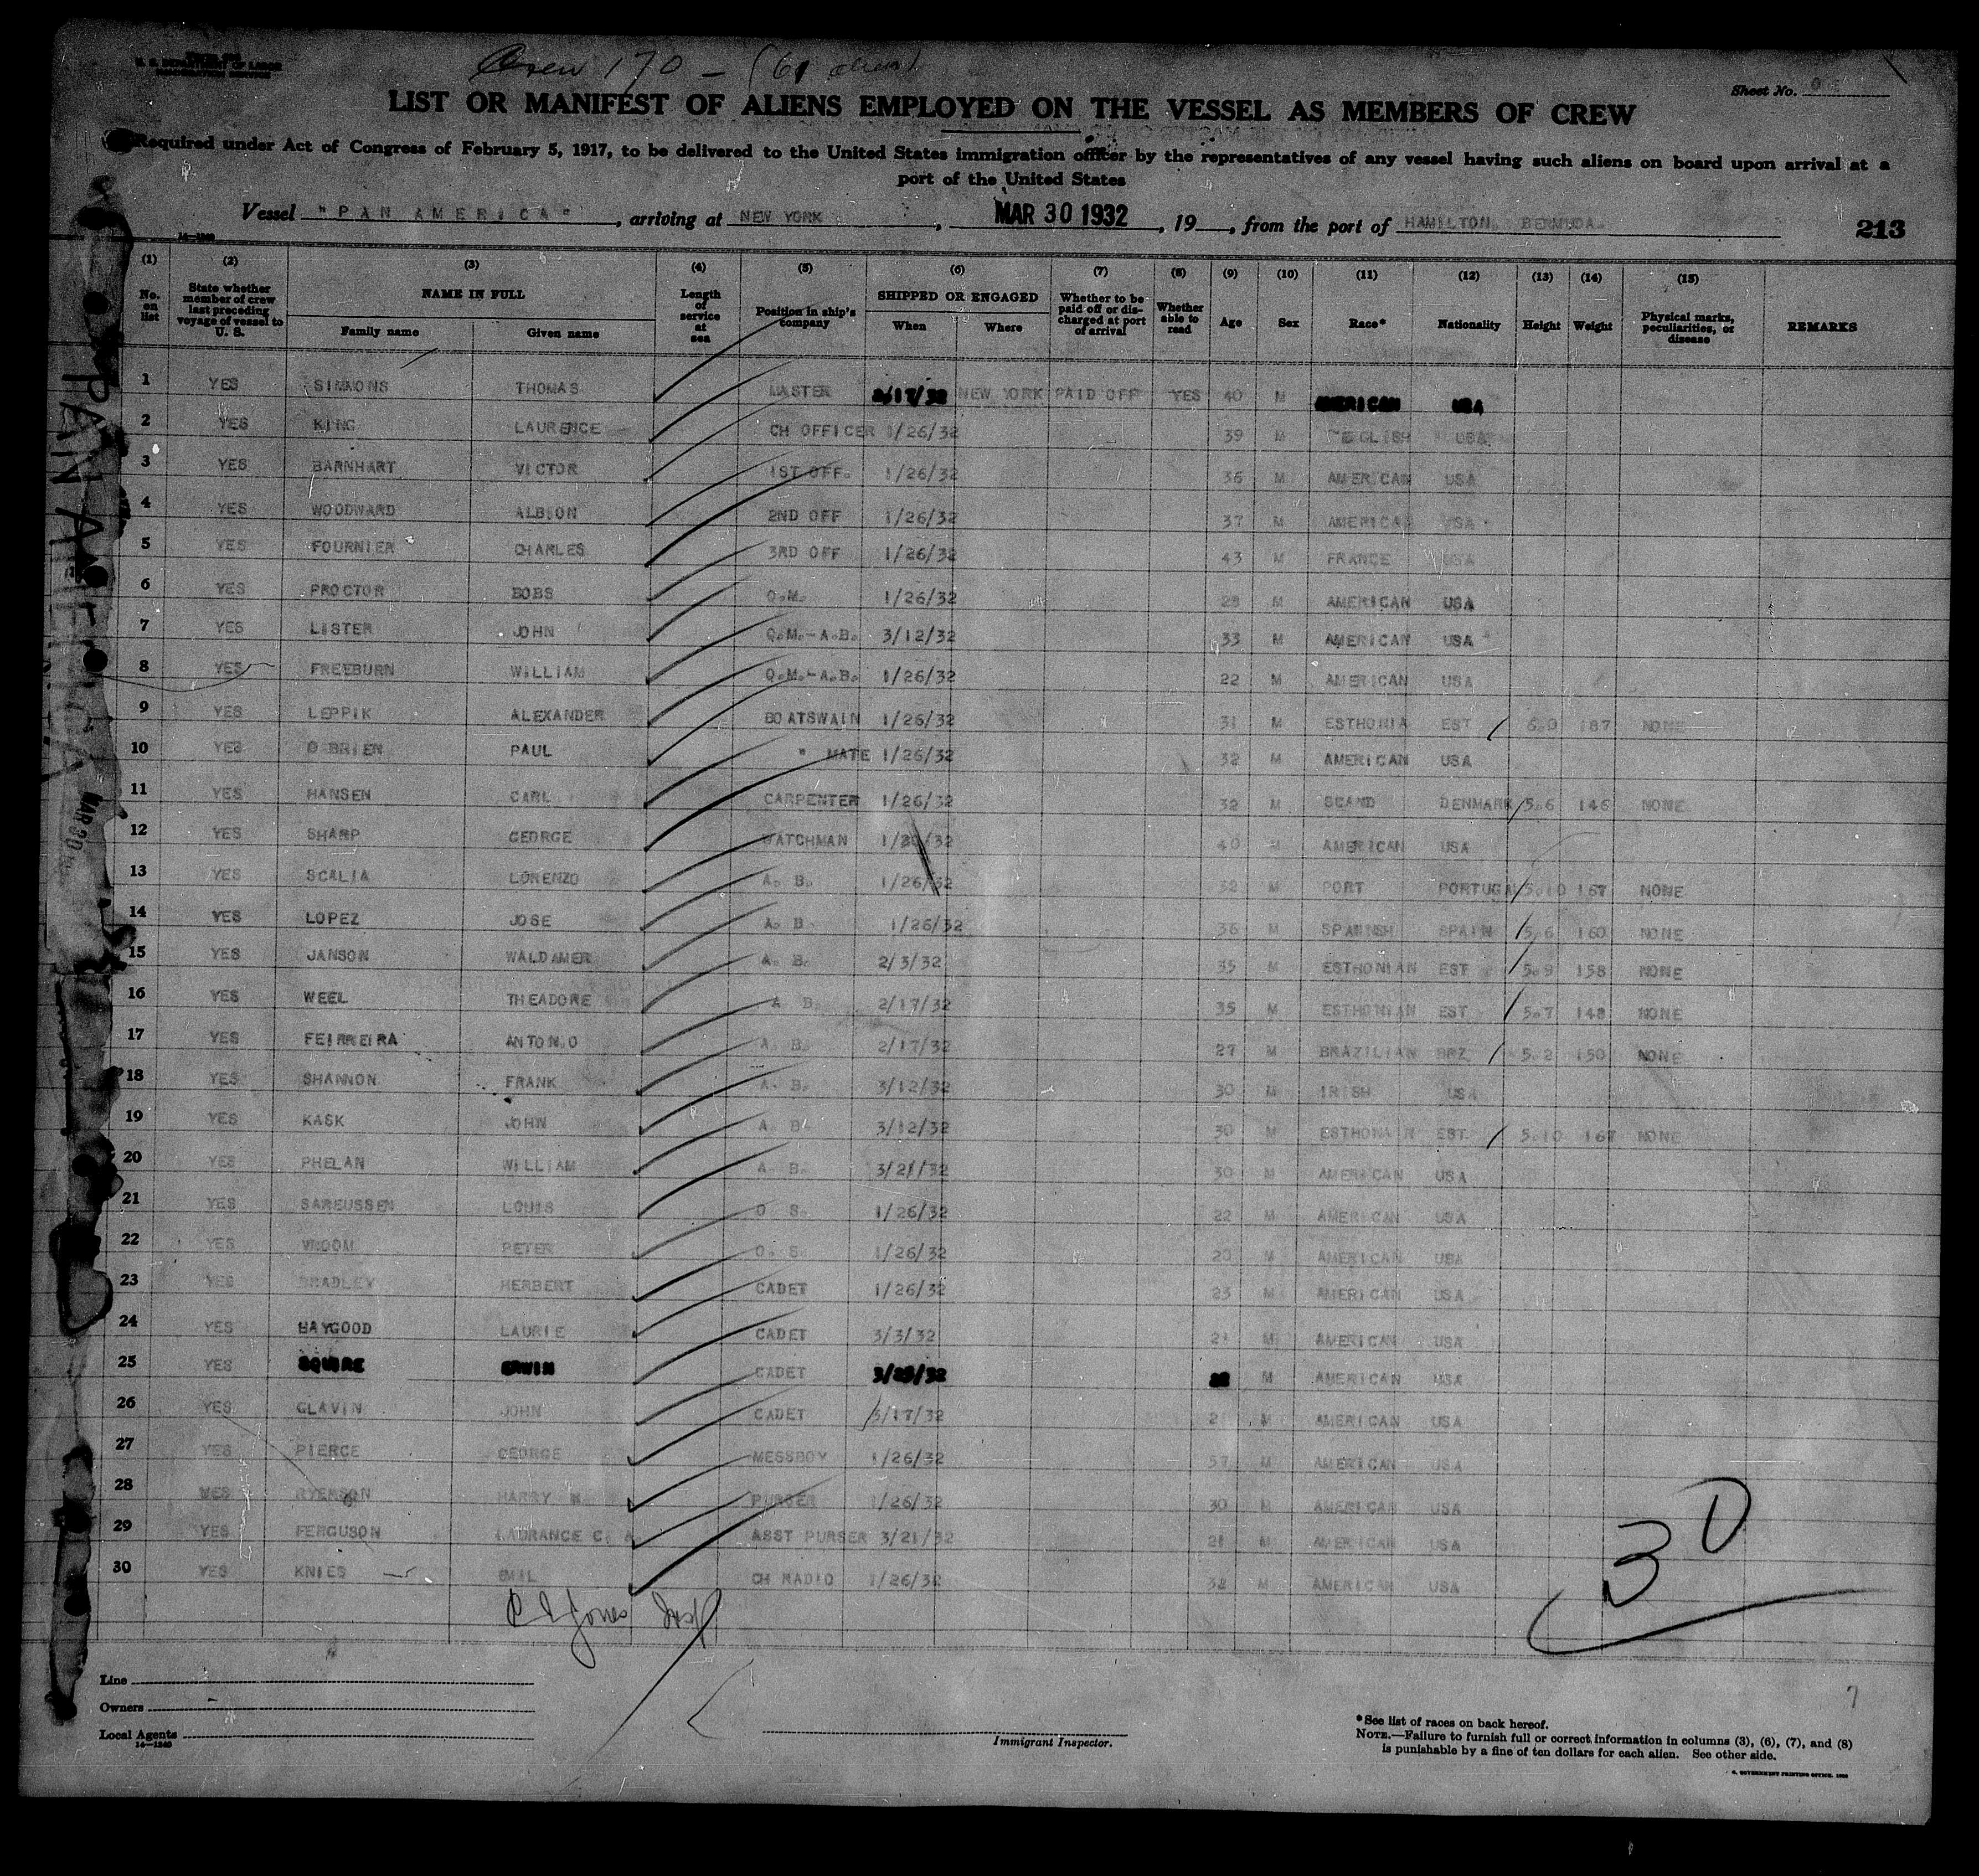 Crew 170 - (61 aliens)
U. S. DEPARTMENT OF LABOR
Sheet No.
LIST OR MANIFEST OF ALIENS EMPLOYED ON THE VESSEL AS MEMBERS OF CREW
Required under Act of Congress of February 5, 1917, to be delivered to the United States immigration officer by the representatives of any vessel having such aliens on board upon arrival at a
port of the United States
Vessel "PAN AMERICA", arriving at NEW YORK, MAR 30 1932, 19__, from the port of HAMILTON, BERMUDA.
213
(1) (2) (3) (4) (5) (6) (7) (8) (9) (10) (11) (12) (13) (14) (15)
No. on list State whether member of crew last preceding voyage of vessel to U. S. NAME IN FULL Family name Given name Length of service at sea Position in ship's company SHIPPED OR ENGAGED When Where Whether to be paid off or discharged at port of arrival Whether able to read Age Sex Race* Nationality Height Weight Physical marks, peculiarities, or disease REMARKS
1 YES SIMMONS THOMAS MASTER 2/17/32 NEW YORK PAID OFF YES 40 M AMERICAN USA
2 YES KING LAURENCE CH OFFICER 1/26/32 39 M ENGLISH USA
3 YES BARNHART VICTOR 1ST OFF. 1/26/32 36 M AMERICAN USA
4 YES WOODWARD ALBION 2ND OFF 1/26/32 37 M AMERICAN USA
5 YES FOURNIER CHARLES 3RD OFF 1/26/32 43 M FRANCE USA
6 YES PROCTOR BOBS Q.M. 1/26/32 M AMERICAN USA
7 YES LISTER JOHN Q.M.-A.B. 3/12/32 33 M AMERICAN USA
8 YES FREEBURN WILLIAM Q.M.-A.B. 1/26/32 22 M AMERICAN USA
9 YES LEPPIK ALEXANDER BOATSWAIN 1/26/32 31 M ESTHONIA EST 6.0 187 NONE
10 YES O BRIEN PAUL " MATE 1/26/32 32 M AMERICAN USA
11 YES HANSEN CARL CARPENTER 1/26/32 32 M SCAND DENMARK 5.6 146 NONE
12 YES SHARP GEORGE WATCHMAN 1/26/32 40 M AMERICAN USA
13 YES SCALIA LORENZO A. B. 1/26/32 32 M PORT PORTUGA 5.10 167 NONE
14 YES LOPEZ JOSE A. B 1/26/32 36 M SPANISH SPAIN 5.6 160 NONE
15 YES JANSON WALDAMER A. B. 2/3/32 35 M ESTHONIAN EST 5.9 158 NONE
16 YES WEEL THEADORE A B. 2/17/32 35 M ESTHONIAN EST 5.7 148 NONE
17 YES FEIRREIRA ANTONIO A. B. 2/17/32 27 M BRAZILIAN BRZ 5.2 150 NONE
18 YES SHANNON FRANK A. B. 3/12/32 30 M IRISH USA
19 YES KASK JOHN A. B. 3/12/32 30 M ESTHONAIN EST. 5.10 167 NONE
20 YES PHELAN WILLIAM A. B. 3/21/32 30 M AMERICAN USA
21 YES SAREUSSEN LOUIS O. S. 1/26/32 22 M AMERICAN USA
22 YES VROOM PETER O. S. 1/26/32 20 M AMERICAN USA
23 YES BRADLEY HERBERT CADET 1/26/32 23 M AMERICAN USA
24 YES HAYGOOD LAURIE CADET 3/3/32 21 M AMERICAN USA
25 YES SQUIRE ERWIN CADET 3/29/32 M AMERICAN USA
26 YES GLAVIN JOHN CADET 3/17/32 M AMERICAN USA
27 YES PIERCE GEORGE MESSBOY 1/26/32 57 M AMERICAN USA
28 YES RYERSON HARRY W. PURSER 1/26/32 30 M AMERICAN USA
29 YES FERGUSON LAURANCE C. A. ASST PURSER 3/21/32 21 M AMERICAN USA
30 YES KNIES EMIL CH RADIO 1/26/32 32 M AMERICAN USA
Jones Insp
30
Line
Owners
Local Agents
14—1240
Immigrant Inspector.
*See list of races on back hereof.
NOTE.—Failure to furnish full or correct information in columns (3), (6), (7), and (8)
is punishable by a fine of ten dollars for each alien. See other side.
GOVERNMENT PRINTING OFFICE